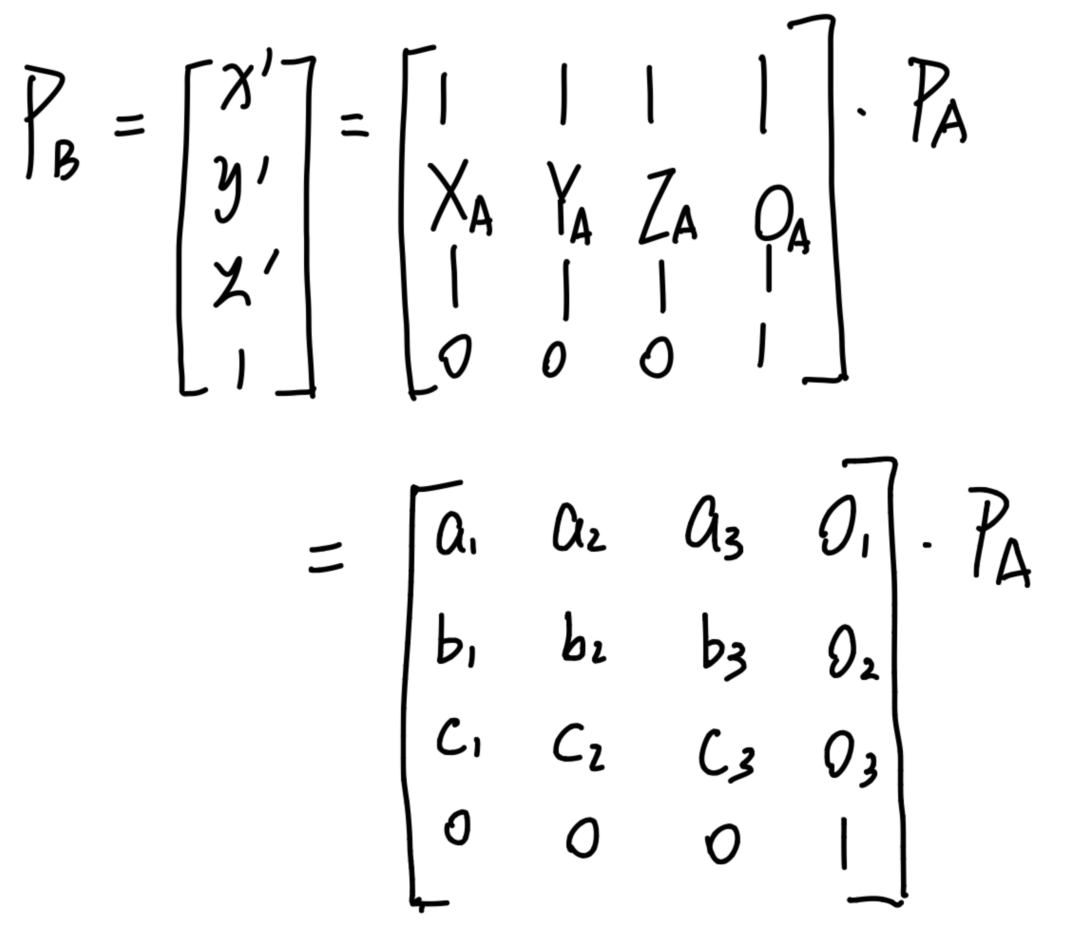 P_B = [x' y' z' 1] = [| | | | X_A Y_A Z_A O_A | | | | 0 0 0 1] · P_A
= [a₁ a₂ a₃ O₁ b₁ b₂ b₃ O₂ c₁ c₂ c₃ O₃ 0 0 0 1] · P_A